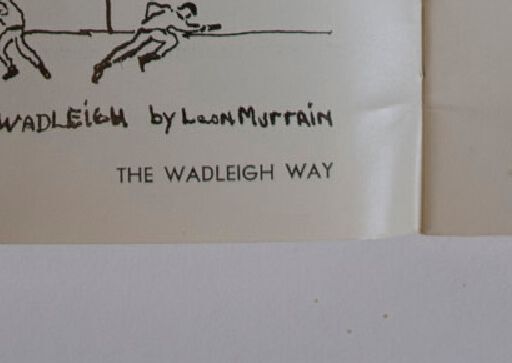 WADLEIGH by Leon Murrain
THE WADLEIGH WAY